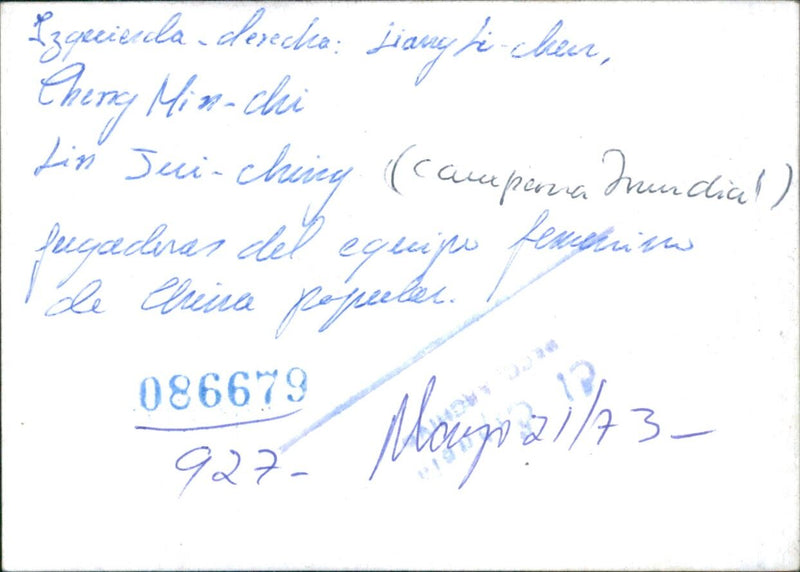 Izquierda - derecha: Liang Li-chen,
Cheng Min-chi
Lin Jui-ching (campeona mundial)
jugadoras del equipo femenino
de China popular.
086679
927- Mayo 21/73-